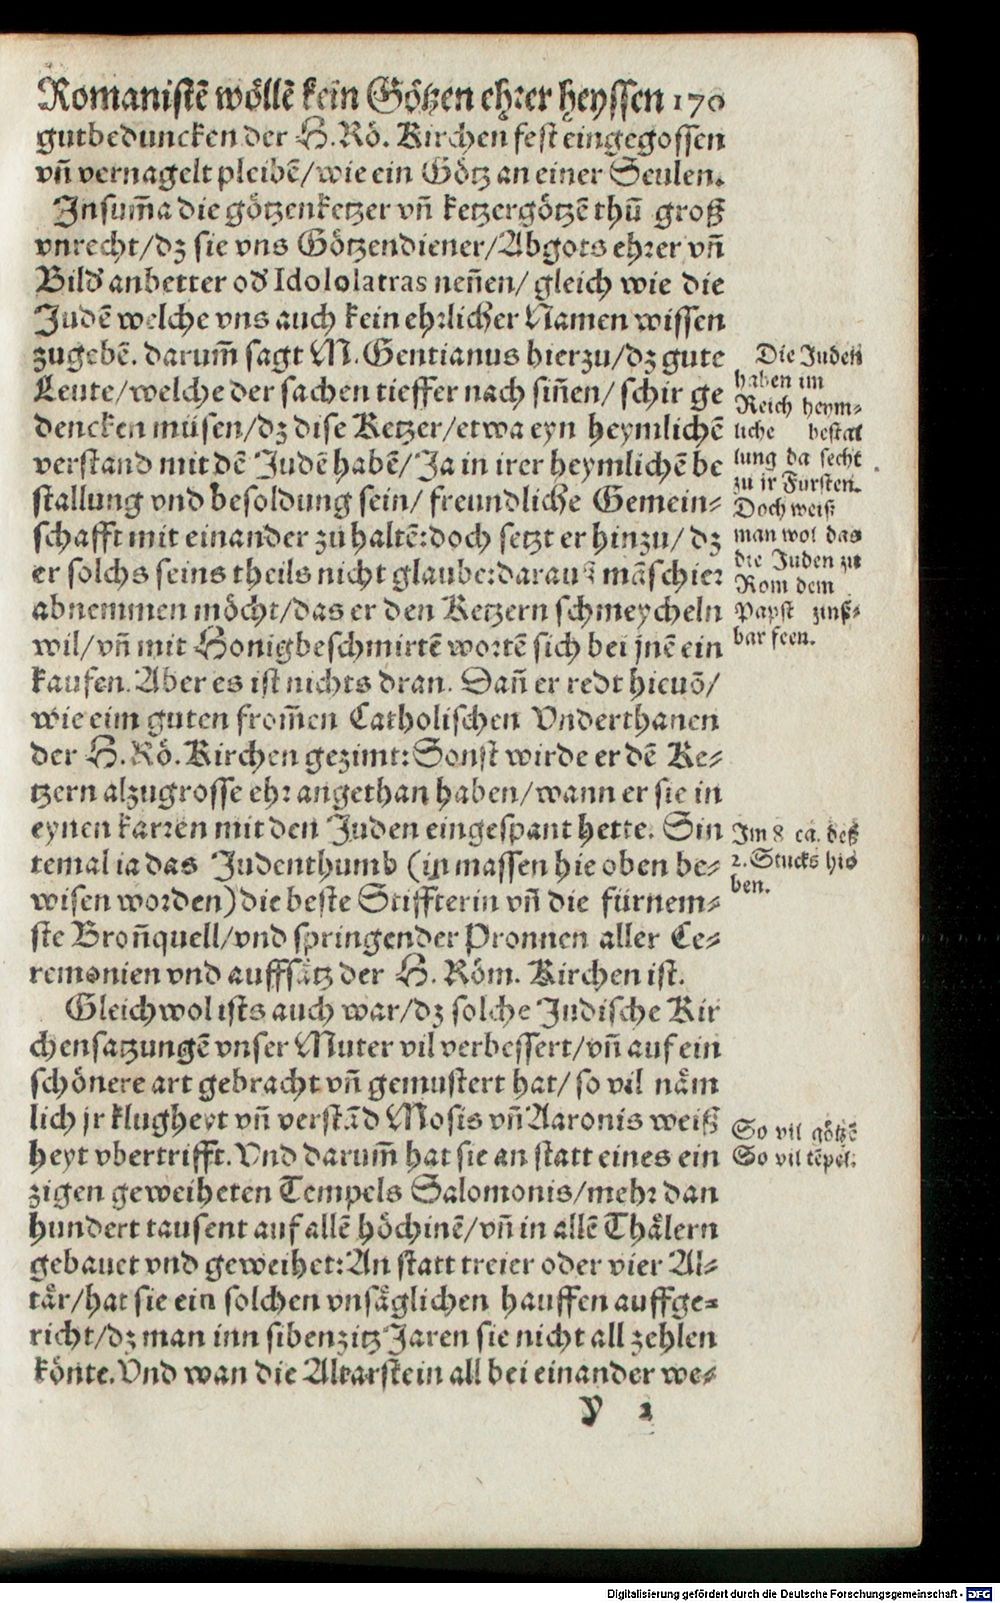 Romanistē wöllē kein Götzen ehrer heyssen 170
gutbeduncken der H. Rö. Kirchen fest eingegossen
vn̄ vernagelt pleibē/wie ein Götz an einer Seulen.
Jn sum̄a die götzenketzer vn̄ ketzergötzē thū groß
vnrecht/dz sie vns Götzendiener/Abgots ehrer vn̄
Bild anbetter od Idololatras nen̄en/ gleich wie die
Judē welche vns auch kein ehrlicher Namen wissen
zugebē. darum̄ sagt M. Gentianus hierzu/dz gute
Leute/welche der sachen tieffer nach sin̄en/ schir ge
dencken müsen/dz dise Ketzer/etwa eyn heymlichē
verstand mit dē Judē habē/Ja in irer heymlichē be
stallung vnd besoldung sein/ freundliche Gemein-
schafft mit einander zů haltē:doch setzt er hinzu/ dz
er solchs seins theils nicht glaube:darauß mā schier
abnemmen möcht/das er den Ketzern schmeycheln
wil/vn̄ mit Honigbeschmirtē wortē sich bei jnē ein
kaufen. Aber es ist nichts dran. Dan̄ er redt hieuō/
wie eim guten from̄en Catholischen Vnderthanen
der H. Rö. Kirchen gezimt:Sonst wirde er dē Ke-
tzern alzugrosse ehr angethan haben/wann er sie in
eynen karren mit den Juden eingespant hette. Sin
temal ia das Judenthumb (in massen hie oben be-
wisen worden) die beste Stiffterin vn̄ die fürnem-
ste Bron̄quell/vnd springender Pronnen aller Ce-
remonien vnd auffsätz der H. Röm. Kirchen ist.
Gleichwol ists auch war/dz solche Jüdische Kir
chensatzungē vnser Muter vil verbessert/vn̄ auf ein
schönere art gebracht vn̄ gemustert hat/ so vil näm
lich jr klugheyt vn̄ verstād Mosis vn̄ Aaronis weiß
heyt vbertrifft. Vnd darum̄ hat sie an statt eines ein
zigen geweiheten Tempels Salomonis/mehr dan
hundert tausent auf allē höchinē/vn̄ in allē Thälern
gebauet vnd geweihet:An statt treier oder vier Al-
tär/hat sie ein solchen vnsäglichen hauffen auffge-
richt/dz man inn sibenzitz Jaren sie nicht all zehlen
könte. Vnd wan die Altarstein all bei einander we-
y 2
Die Juden
haben im
Reich heym-
liche bestal
lung da secht
zu ir Fursten.
Doch weiß
man wol das
die Juden zu
Rom dem
Papst zinß-
bar seen.
Im 8 ca. deß
2. Stucks hio
ben.
So vil götzē
So vil tēpel.
Digitalisierung gefördert durch die Deutsche Forschungsgemeinschaft - DFG